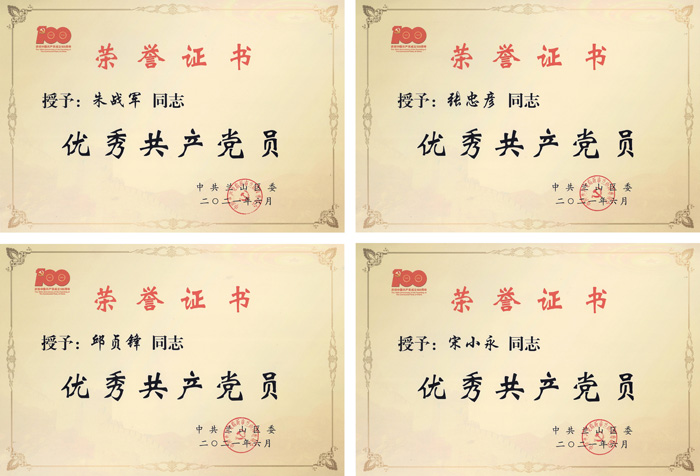 荣誉证书
授予：朱战军 同志
优秀共产党员
中共兰山区委
二〇二一年六月
荣誉证书
授予：张忠彦 同志
优秀共产党员
中共兰山区委
二〇二一年六月
荣誉证书
授予：邱贞锋 同志
优秀共产党员
中共兰山区委
二〇二一年六月
荣誉证书
授予：宋小永 同志
优秀共产党员
中共兰山区委
二〇二一年六月